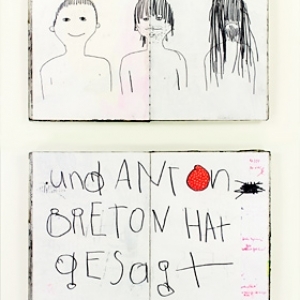 und ANTOn
BRETON HAt
gESagt